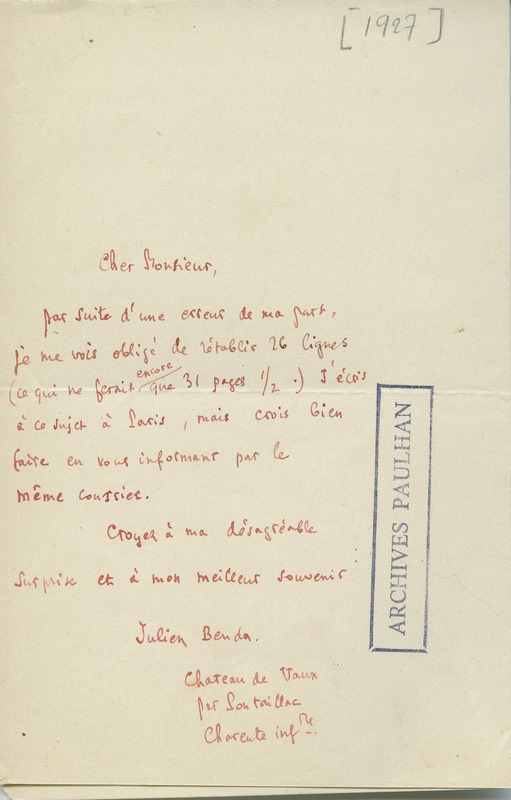 [1927]
Cher Monsieur,
par suite d'une erreur de ma part,
je me vois obligé de rétablir 26 lignes
(ce qui ne ferait encore que 31 pages 1/2.) J'écris
à ce sujet à Paris, mais crois bien
faire en vous informant par le
même courrier.
Croyez à ma désagréable
surprise et à mon meilleur souvenir
Julien Benda.
Chateau de Vaux
par Pontaillac
Charente infre.
ARCHIVES PAULHAN